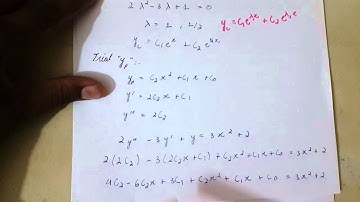 2λ² - 3λ + 1 = 0
λ = 1, 1/2
y_c = C₁e^{λx} + C₂e^{λx}
y_c = C₁e^x + C₂e^{½x}
Trial "y_p" :-
y_p = C₂x² + C₁x + C₀
y' = 2C₂x + C₁
y'' = 2C₂
2y'' - 3y' + y = 3x² + 2
2(2C₂) - 3(2C₂x + C₁) + C₂x² + C₁x + C₀ = 3x² + 2
4C₂ - 6C₂x + 3C₁ + C₂x² + C₁x + C₀ = 3x² + 2